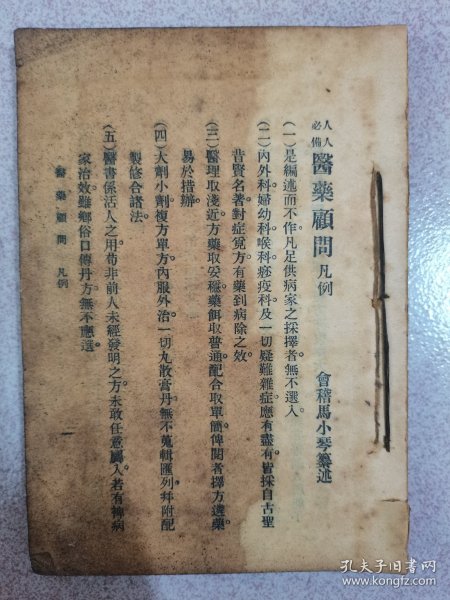 人人必備醫藥顧問凡例
會稽馬小琴纂述
(一)是編述而不作。凡足供病家之採擇者。無不選入。
(二)內外科。婦幼科。喉科。痧疫科。及一切疑難雜症。應有盡有。皆採自古聖
昔賢名著。對症覓方。有藥到病除之效。
(三)醫理取淺近。方藥取妥穩。藥餌取普通。配合取單簡。俾閱者擇方選藥。
易於措辦。
(四)大劑小劑。複方單方。內服外治。一切丸散膏丹。無不蒐輯匯列。并附配
製修合諸法。
(五)醫書係活人之用。苟非前人未經發明之方。未敢任意羼入。若有裨病
家治效。雖鄉俗口傳丹方。無不應選。
醫藥顧問 凡例
一
孔夫子旧书网
www.kongfz.com